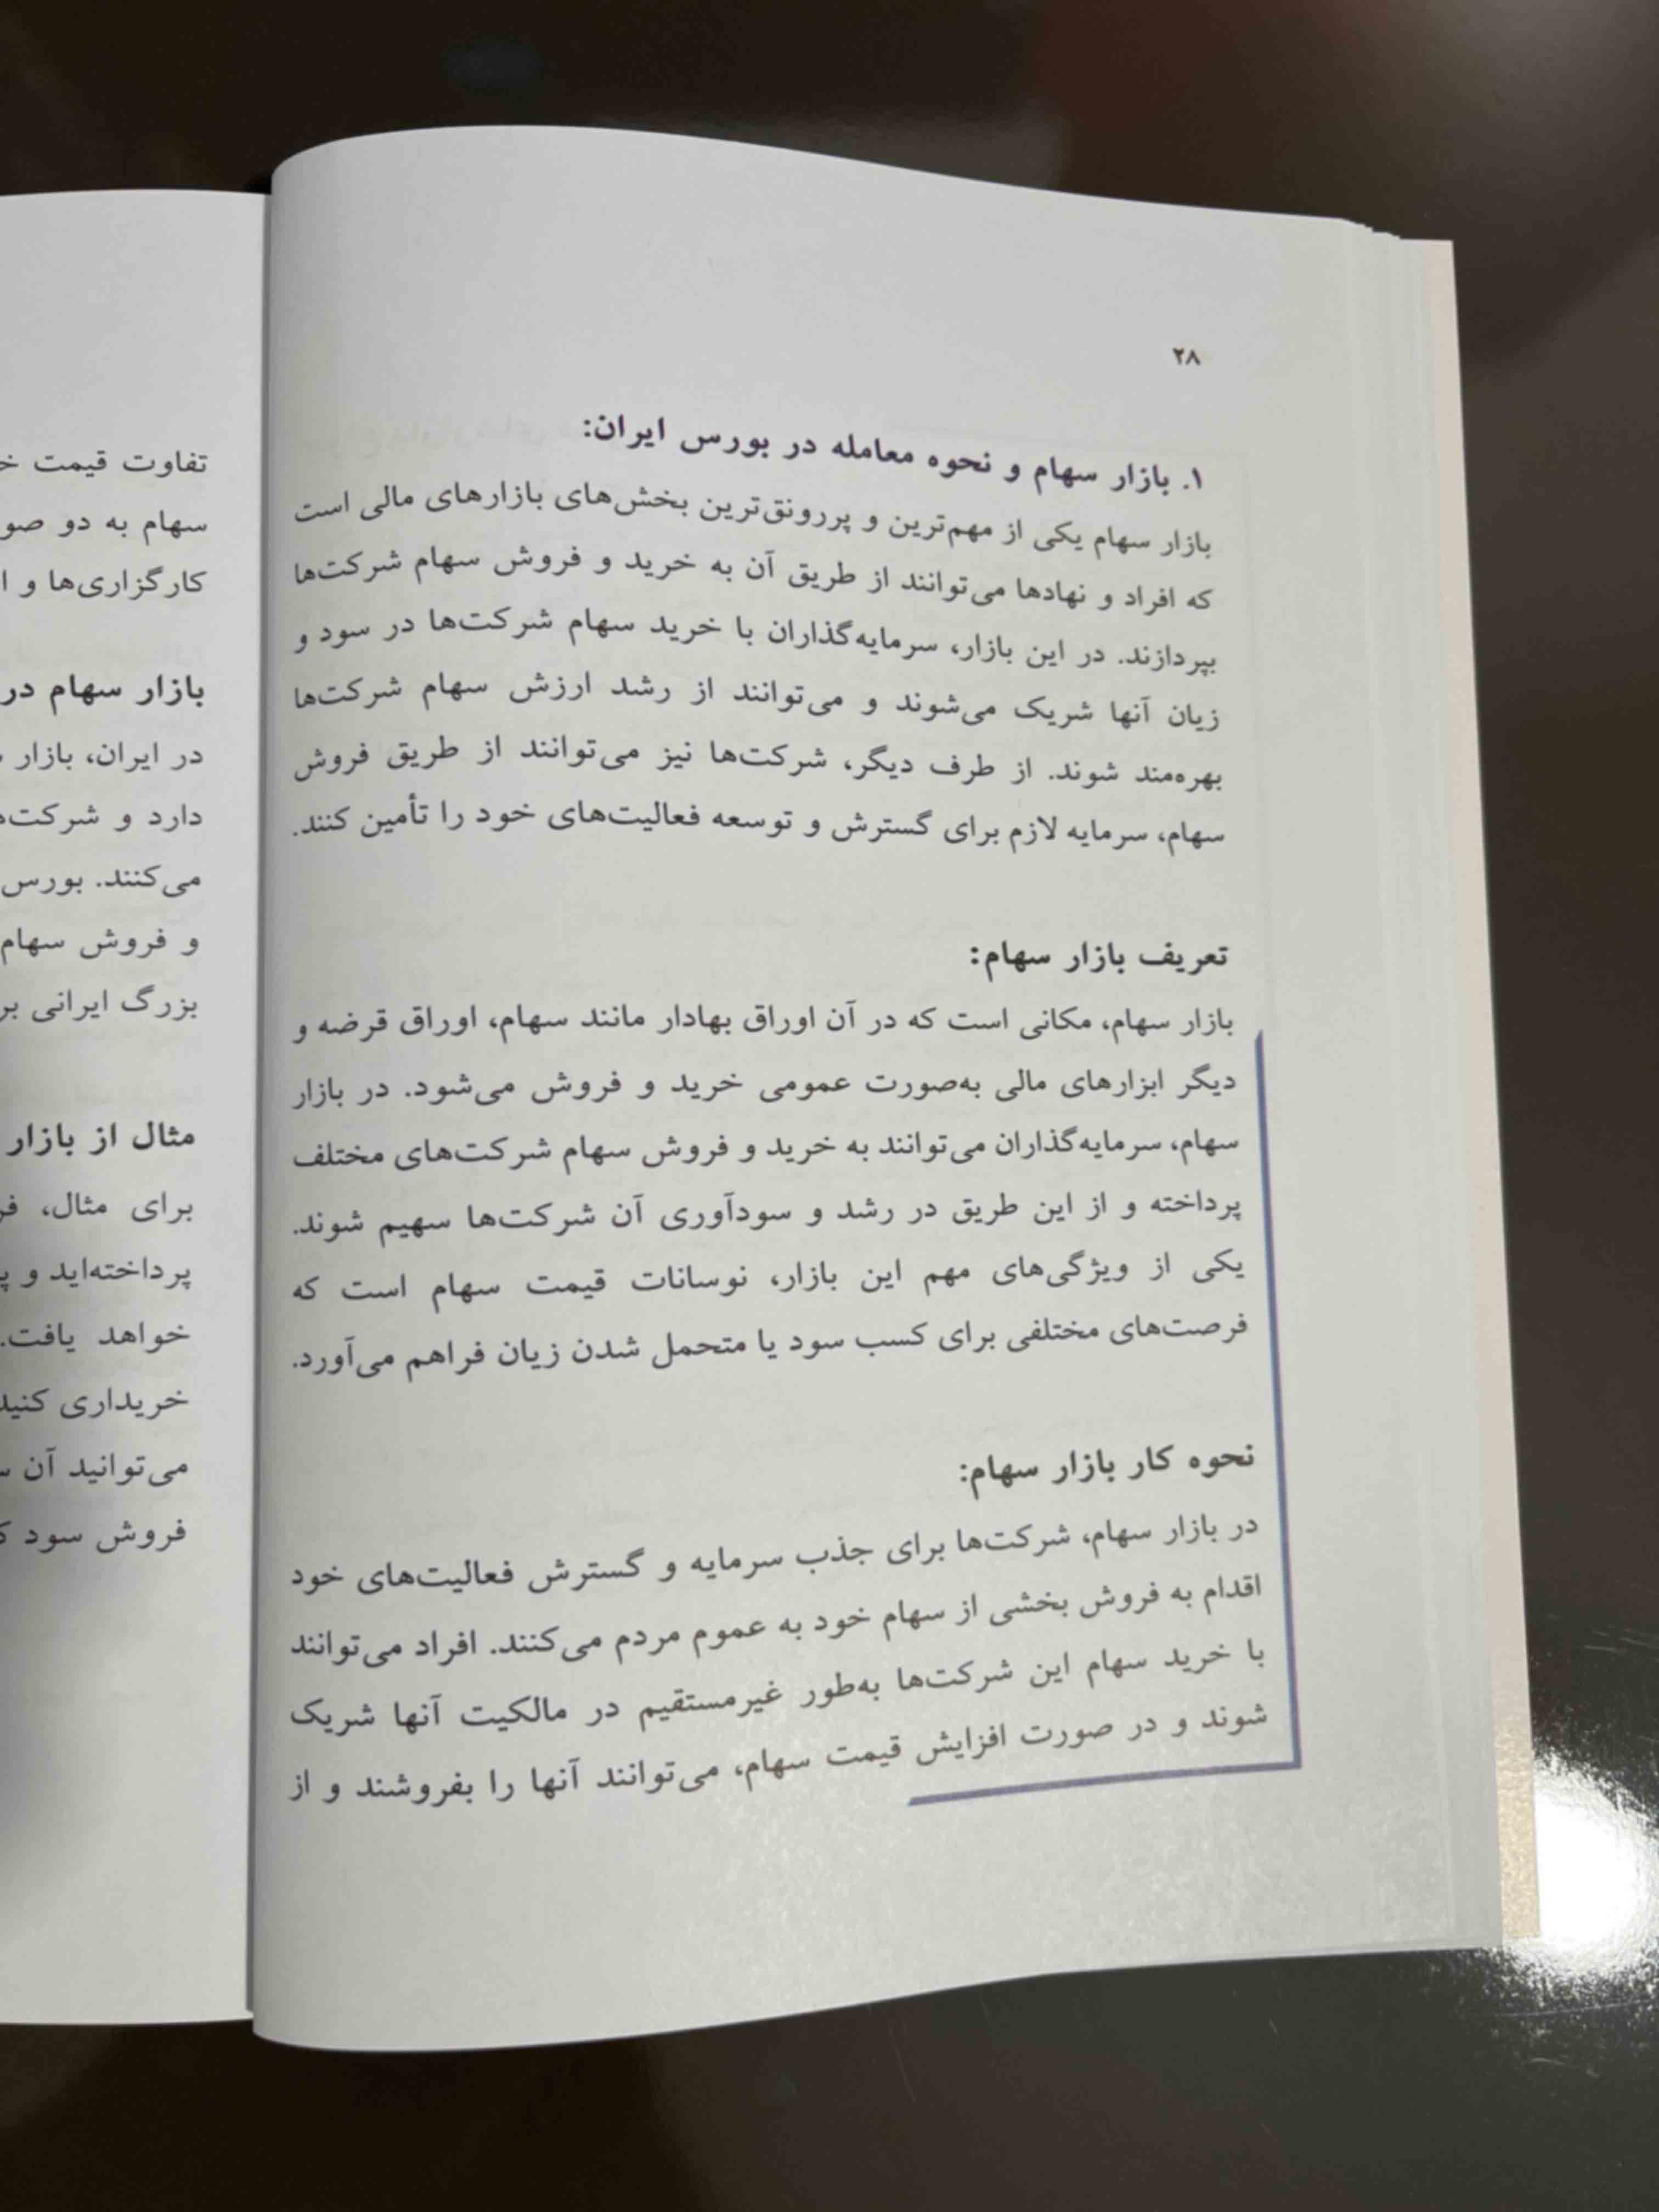 ۲۸
۱. بازار سهام و نحوه معامله در بورس ایران:
بازار سهام یکی از مهم‌ترین و پررونق‌ترین بخش‌های بازارهای مالی است
که افراد و نهادها می‌توانند از طریق آن به خرید و فروش سهام شرکت‌ها
بپردازند. در این بازار، سرمایه‌گذاران با خرید سهام شرکت‌ها در سود و
زیان آنها شریک می‌شوند و می‌توانند از رشد ارزش سهام شرکت‌ها
بهره‌مند شوند. از طرف دیگر، شرکت‌ها نیز می‌توانند از طریق فروش
سهام، سرمایه لازم برای گسترش و توسعه فعالیت‌های خود را تأمین کنند.
تعریف بازار سهام:
بازار سهام، مکانی است که در آن اوراق بهادار مانند سهام، اوراق قرضه و
دیگر ابزارهای مالی به‌صورت عمومی خرید و فروش می‌شود. در بازار
سهام، سرمایه‌گذاران می‌توانند به خرید و فروش سهام شرکت‌های مختلف
پرداخته و از این طریق در رشد و سودآوری آن شرکت‌ها سهیم شوند.
یکی از ویژگی‌های مهم این بازار، نوسانات قیمت سهام است که
فرصت‌های مختلفی برای کسب سود یا متحمل شدن زیان فراهم می‌آورد.
نحوه کار بازار سهام:
در بازار سهام، شرکت‌ها برای جذب سرمایه و گسترش فعالیت‌های خود
اقدام به فروش بخشی از سهام خود به عموم مردم می‌کنند. افراد می‌توانند
با خرید سهام این شرکت‌ها به‌طور غیرمستقیم در مالکیت آنها شریک
شوند و در صورت افزایش قیمت سهام، می‌توانند آنها را بفروشند و از
تفاوت قیمت
سهام به دو
کارگزاری‌ها و
بازار سهام در
در ایران، بازار
دارد و
می‌کنند. بورس
و فروش سهام
بزرگ ایرانی
مثال از بازار
برای مثال،
پرداخته‌اید و
خواهد یافت.
خریداری
می‌توانید آن
فروش سود